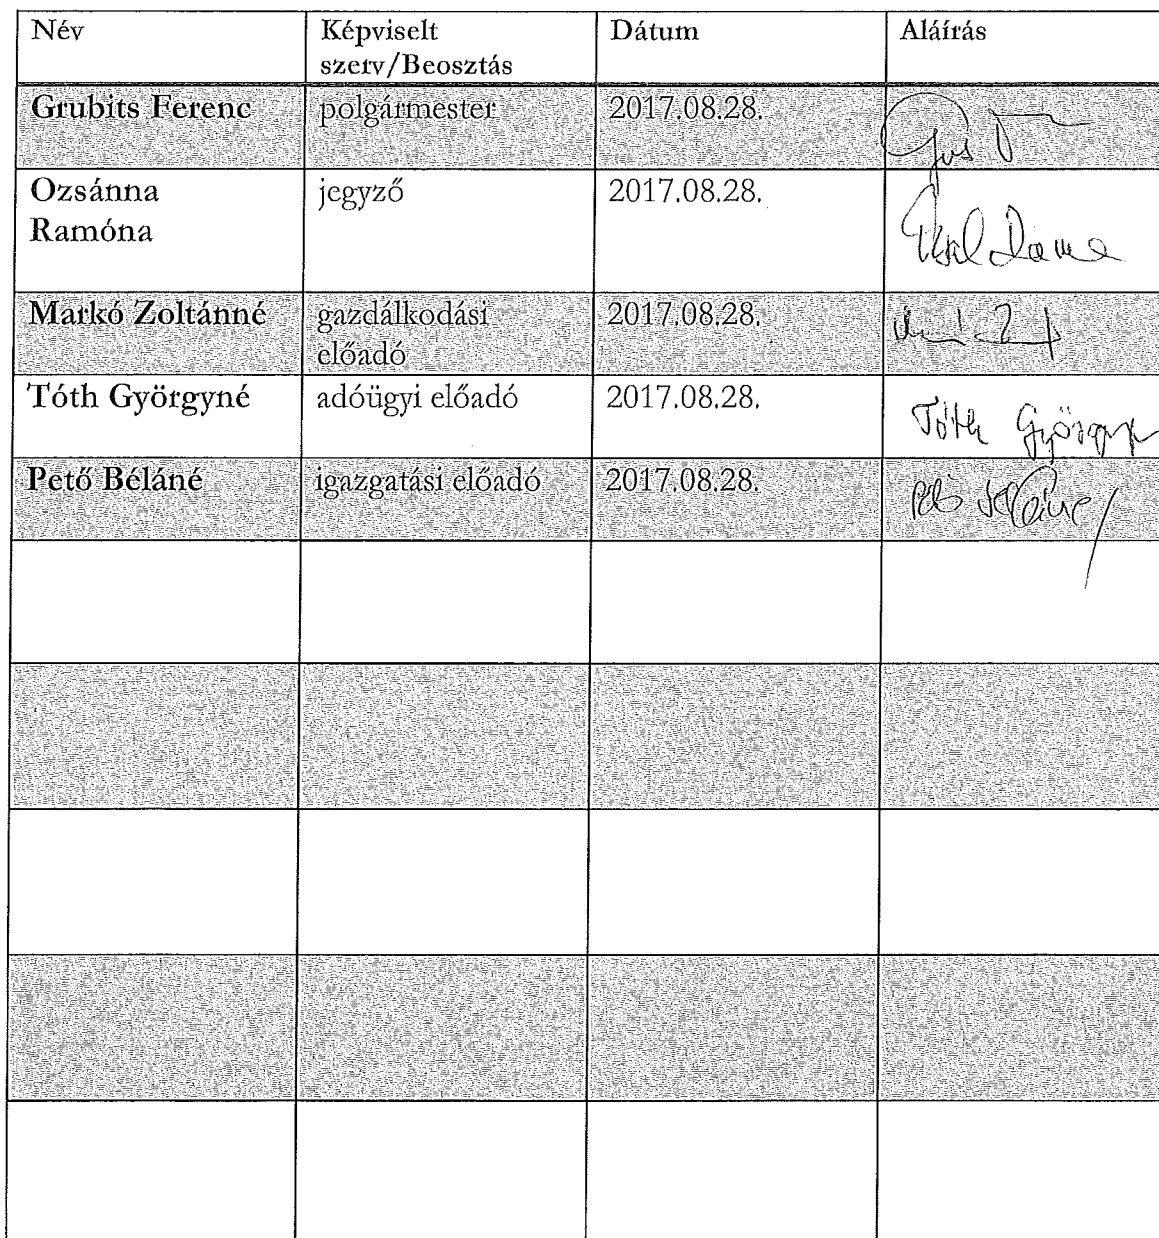 Név Képviselt szerv/Beosztás Dátum Aláírás
Grubits Ferenc polgármester 2017.08.28.
Ozsánna Ramóna jegyző 2017.08.28.
Markó Zoltánné gazdálkodási előadó 2017.08.28.
Tóth Györgyné adóügyi előadó 2017.08.28. Tóth
Pető Béláné igazgatási előadó 2017.08.28.